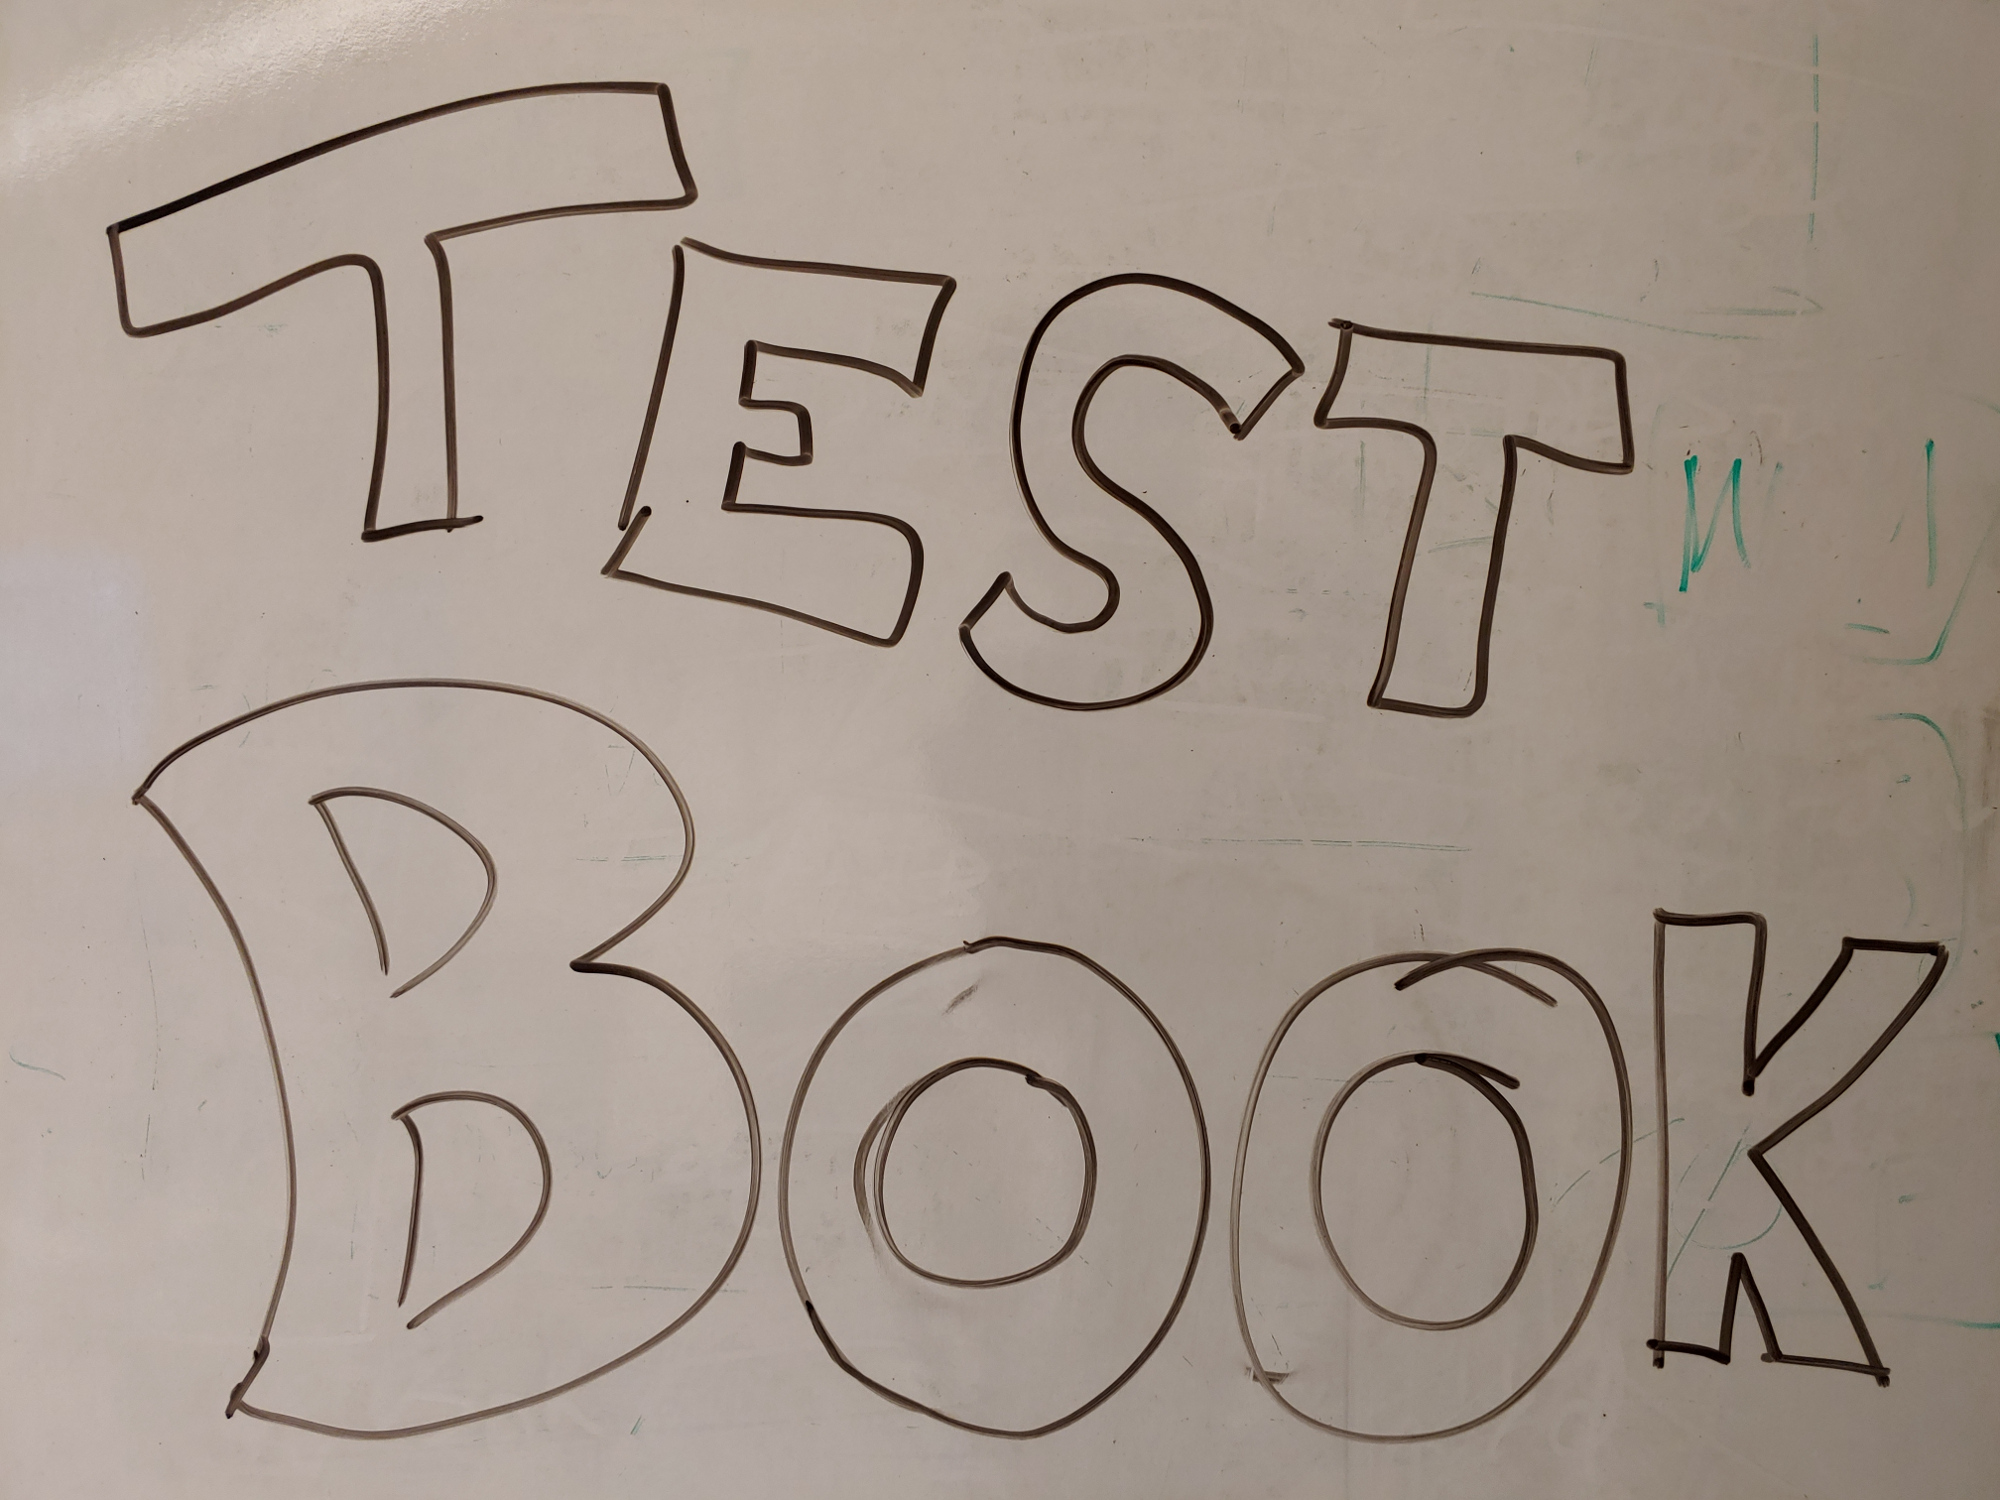 TEST
BOOK